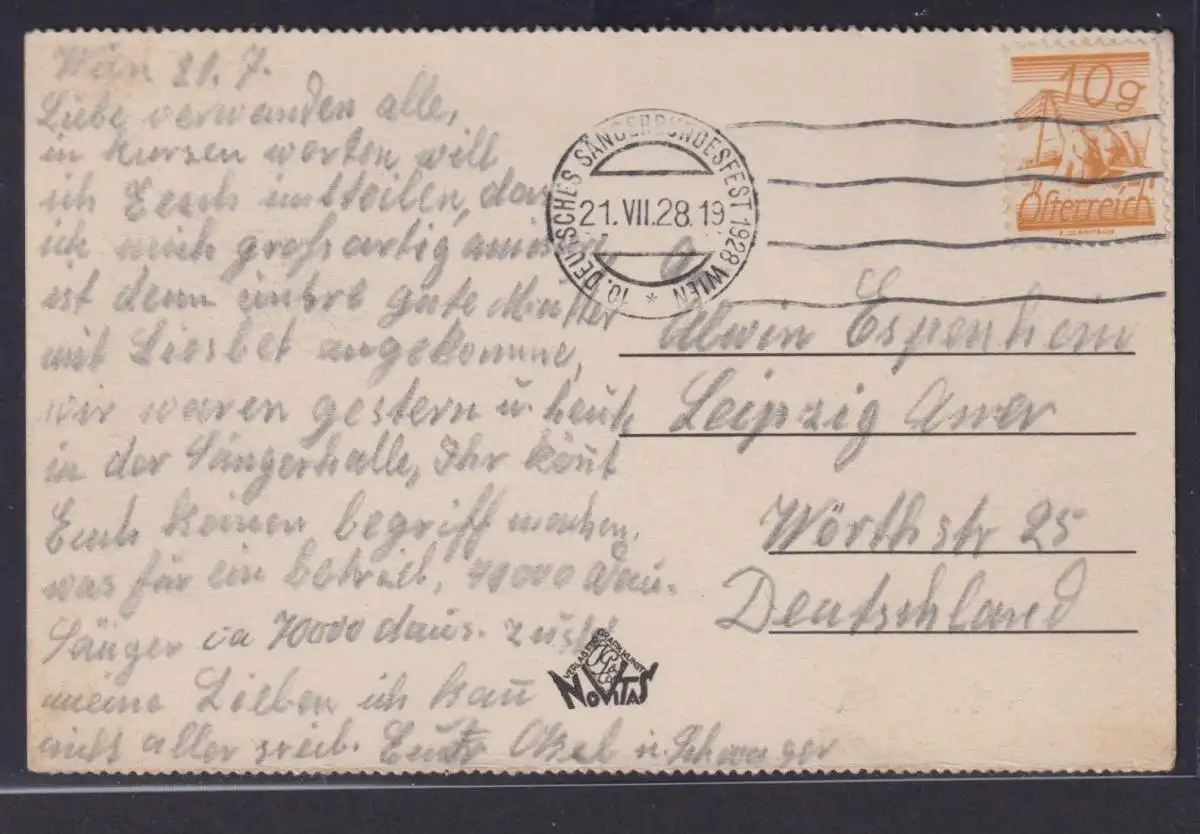 Wien 21. 7.
Liebe verwanden alle,
in kurzen worten will
ich Euch mitteilen, das
ich mich großartig
ist denn unsre gute Mutter
mit Liesbet angekomme,
wir waren gestern u. heute
in der Sängerhalle, Ihr köñt
Euch keinen begriff machen,
was für ein betrieb,
Sänger ca 70000
meine Lieben ich kañ
nicht aller Eur u. Schwager
10. DEUTSCHES SÄNGERBUNDESFEST 1928 WIEN *
21. VII. 28. 19
10g
Österreich
Alwin Espenhein
Leipzig
Wörthstr 25
Deutschland
VERLAG FÜR GRAPH. KUNST
NOVITAS